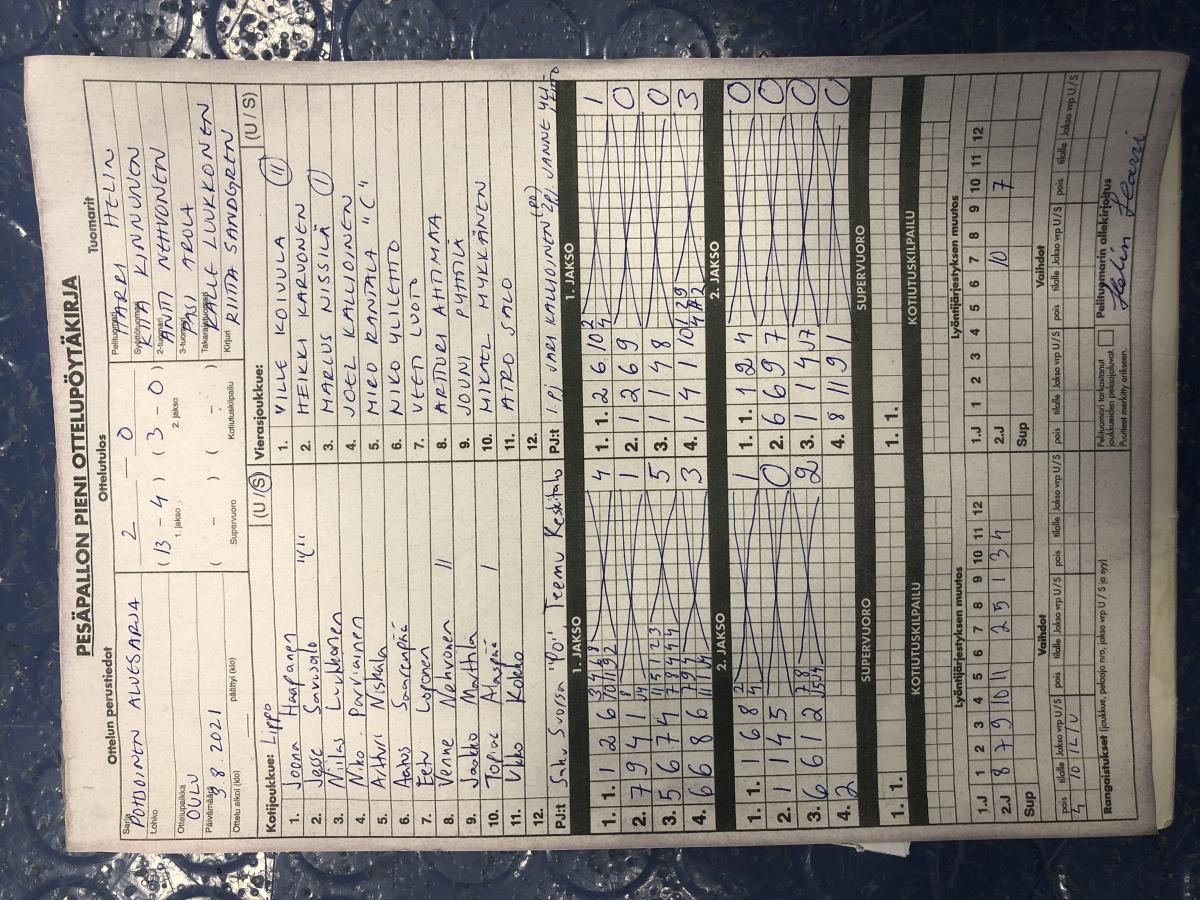 PESÄPALLON PIENI OTTELUPÖYTÄKIRJA
Ottelun perustiedot
Ottelutulos
Tuomarit
Sarja
POHJOINEN ALUESARJA
Lohko
Ottelupaikka
OULU
Päivämäärä
9.8.2021
Ottelu alkoi (klo)
päättyi (klo)
2 – 0
(13 - 4) (3 - 0)
1. jakso
2. jakso
( - ) ( - )
Supervuoro
Kotiutuskilpailu
Pelituomari
HARRI HELIN
Syöttötuomari
KINNUNEN
2-tuomari
ANTTI NEHVONEN
3-tuomari
PASI AROLA
Takarajatuomari
KALLE LUUKKONEN
Kirjuri
RIITA SANDGREN
Kotijoukkue: Lippo
(U / S)
1. Joona Haapanen
2. Jesse Savisalo
3. Niilas Luukkonen
4. Niko Parviainen
5. Arttu Niskala
6. Aatos Saarenpää
7. Eetu Luponen
8. Venne Nehvonen II
9. Jaakko Mattila
10. Topias Alaspää I
11. Ukko Kokko
12.
PJ:t Saku Suorsa "PO" Teemu Keskitalo
Vierasjoukkue:
(U / S)
1. VILLE KOIVULA II
2. HEIKKI KARVONEN
3. MARCUS NISSILÄ I
4. JOEL KALLIOINEN
5. MIRO RANTALA "C"
6. NIKO YLILEHTO
7. VEETI LUOTO
8. ARTTURI AHTIMAA
9. JOUNI PYHTILÄ
10. MIKAEL MYKKÄNEN
11. ATRO SALO
12.
PJ:t 1pj JARI KALLIOINEN (PO) 2pj. JANNE YLI-
1. JAKSO
1. JAKSO
1. 1. 1 2 6
4
2. 7 9 4 1
1
3. 5 6 7 4
5
4. 6 6 8 6
3
1. 1. 2 6 10
1
2. 1 2 6 9
0
3. 1 1 4 8
0
4. 1 4 1 10
3
2. JAKSO
2. JAKSO
1. 1. 1 6 8
1
2. 1 1 4 5
0
3. 6 6 1 2
2
4. 2
1. 1. 1 2 4
0
2. 6 6 9 7
0
3. 1 1 4
0
4. 8 11 9 1
0
SUPERVUORO
SUPERVUORO
1. 1.
1. 1.
KOTIUTUSKILPAILU
KOTIUTUSKILPAILU
Lyöntijärjestyksen muutos
Lyöntijärjestyksen muutos
1.J 1 2 3 4 5 6 7 8 9 10 11 12
2.J 8 7 9 10 11 2 5 1 3 4
Sup
1.J 1 2 3 4 5 6 7 8 9 10 11 12
2.J 10 7
Sup
Vaihdot
Vaihdot
pois tilalle Jakso vrp U/S pois tilalle Jakso vrp U/S pois tilalle Jakso vrp U/S
pois tilalle Jakso vrp U/S pois tilalle Jakso vrp U/S pois tilalle Jakso vrp U/S
Rangaistukset (joukkue, pelaaja nro, jakso vrp U / S ja syy)
Pelituomari tarkastanut
joukkueiden pelaajaluvat.
Puutteet merkitty erikseen.
Pelituomarin allekirjoitus
Helin Harri